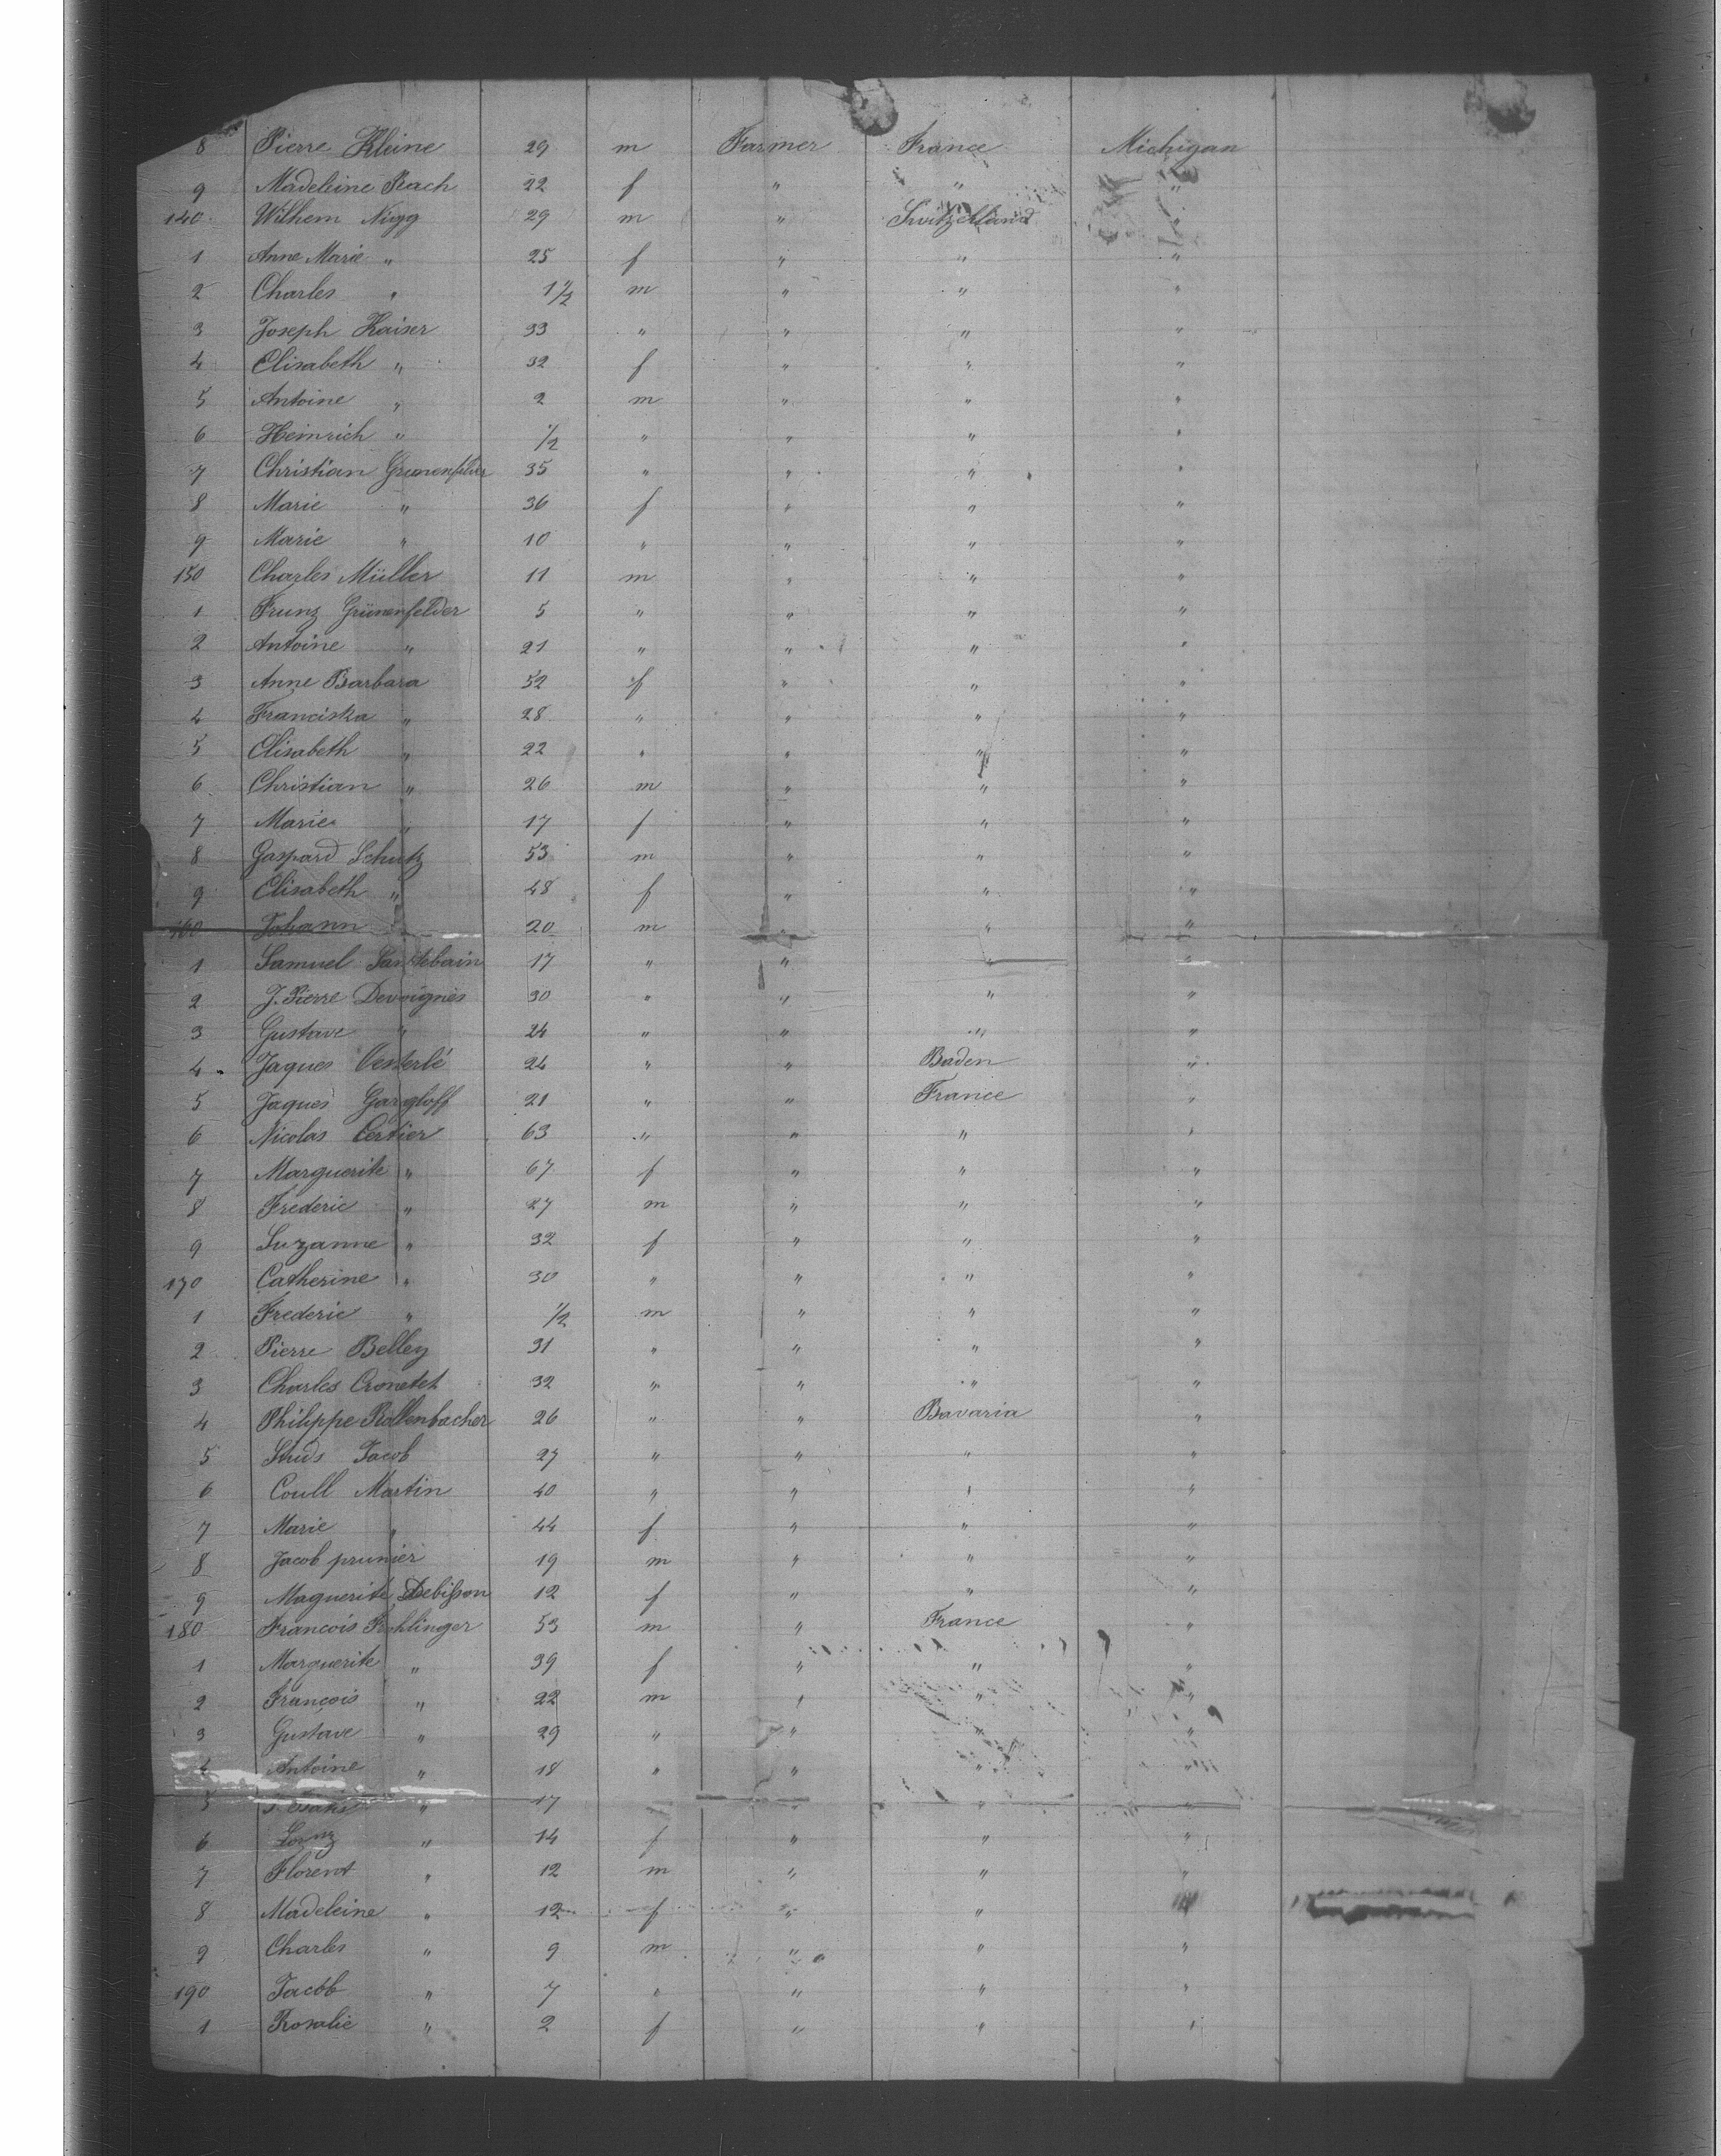 8 Pierre Kleine 29 m Farmer France Michigan
9 Madeleine Prach 22 f " " "
140 Wilhem Nigg 29 m " Switzelland "
1 Anne Marie " 25 f " " "
2 Charles " 1 1/2 m " " "
3 Joseph Kaiser 33 " " " "
4 Elisabeth " 32 f " " "
5 Antoine " 2 m " " "
6 Heinrich " 1/2 " " " "
7 Christian Grunenfelder 35 " " " "
8 Marie " 36 f " " "
9 Marie " 10 " " " "
150 Charles Müller 11 m " " "
1 Frunz Grünenfelder 5 " " " "
2 Antoine " 21 " " " "
3 Anne Barbara 52 f " " "
4 Franciska " 28 " " " "
5 Elisabeth " 22 " " " "
6 Christian " 26 m " " "
7 Marie " 17 f " " "
8 Gaspard Schutz 53 m " " "
9 Elisabeth " 48 f " " "
160 Johann " 20 m " " "
1 Samuel 17 " " " "
2 J. Pierre Devoignes 30 " " " "
3 Gustave " 24 " " " "
4 Jaques Oesterlé 24 " " Baden "
5 Jaques Gargloff 21 " " France "
6 Nicolas Certier 63 " " " "
7 Marguerite " 67 f " " "
8 Frederic " 27 m " " "
9 Suzanne " 32 f " " "
170 Catherine " 30 " " " "
1 Frederic " 1/2 m " " "
2 Pierre Belley 31 " " " "
3 Charles Cronetet 32 " " " "
4 Philippe Rollenbacher 26 " " Bavaria "
5 Studs Jacob 27 " " " "
6 Coull Martin 40 " " " "
7 Marie " 44 f " " "
8 Jacob prunier 19 m " " "
9 Maguerite Debisson 12 f " " "
180 Francois Frohlinger 53 m " France "
1 Marguerite " 39 f " " "
2 François " 22 m " " "
3 Gustave " 29 " " " "
4 Antoine " 18 " " " "
5 " 17 " " "
6 " 14 f " " "
7 Florent " 12 m " " "
8 Madeleine " 12 f " " "
9 Charles " 9 m " " "
190 Jacob " 7 " " " "
1 Rosalie " 2 f " " "